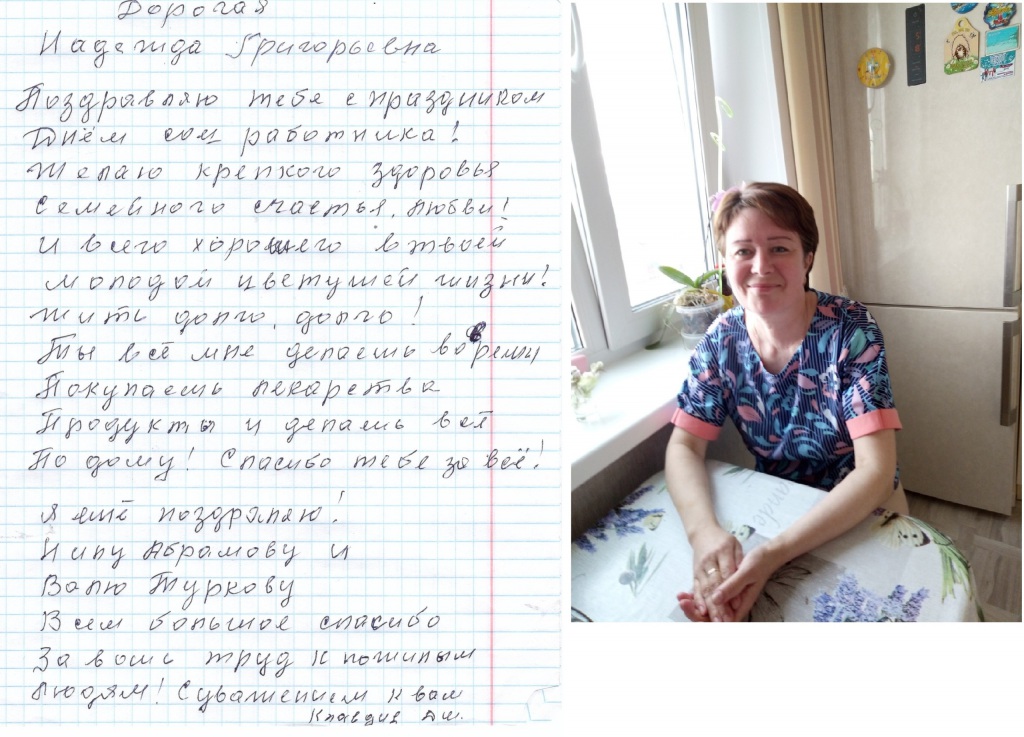 Дорогая
Надежда Григорьевна
Поздравляю тебя с праздником
Днём соц работника!
Желаю крепкого здоровья
Семейного счастья, любви!
И всего хорошего в твоей
молодой цветущей жизни!
Жить долго, долго!
Ты всё мне делаешь вовремя
Покупаешь лекарства
Продукты и делаешь всё
По дому! Спасибо тебе за всё!
Я ещё поздрялаю!
Нину Абрамову и
Валю Туркову
Всем большое спасибо
За ваш труд к пожилым
людям! С уважением к вам
Клавдия Дм.